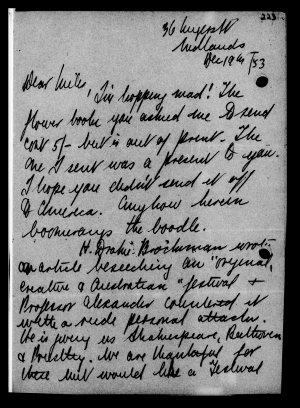 223
36 
Midlands
Dec 19th /53
Dear Miles,
I'm hopping mad! The
flower book you asked me to send
cost 5/- but is out of print. The
one I sent was a present to you.
I hope you didn't send it off
to America. Anyhow herein
boomerangs the boodle.
H. Drake-Brockman wrote
an article beseeching an "original,
creative & Australian" festival &
Professor Alexander countered it
with a rude personal attack.
He is giving us Shakespeare, Beethoven
& Priestley. We are thankful for
these but would like a "festival